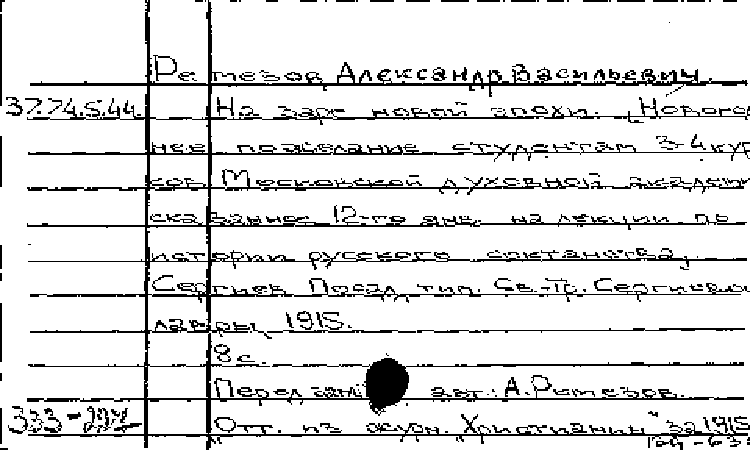 Ремезов Александр Васильевич.
37.74.5.44. На заре новой эпохи. [Нового
нее пожелание студентам 3-4 кур
сов Московской духовной академ
сказанное 12-го янв. на лекции по
истории русского сектанства,
Сергиев Посад, тип. Св.-Тр. Сергиево
лавры, 1915.
8 с.
Перед авт.: А. Ремезов.
333-227 Отт. из журн. "Христианин" за 1915